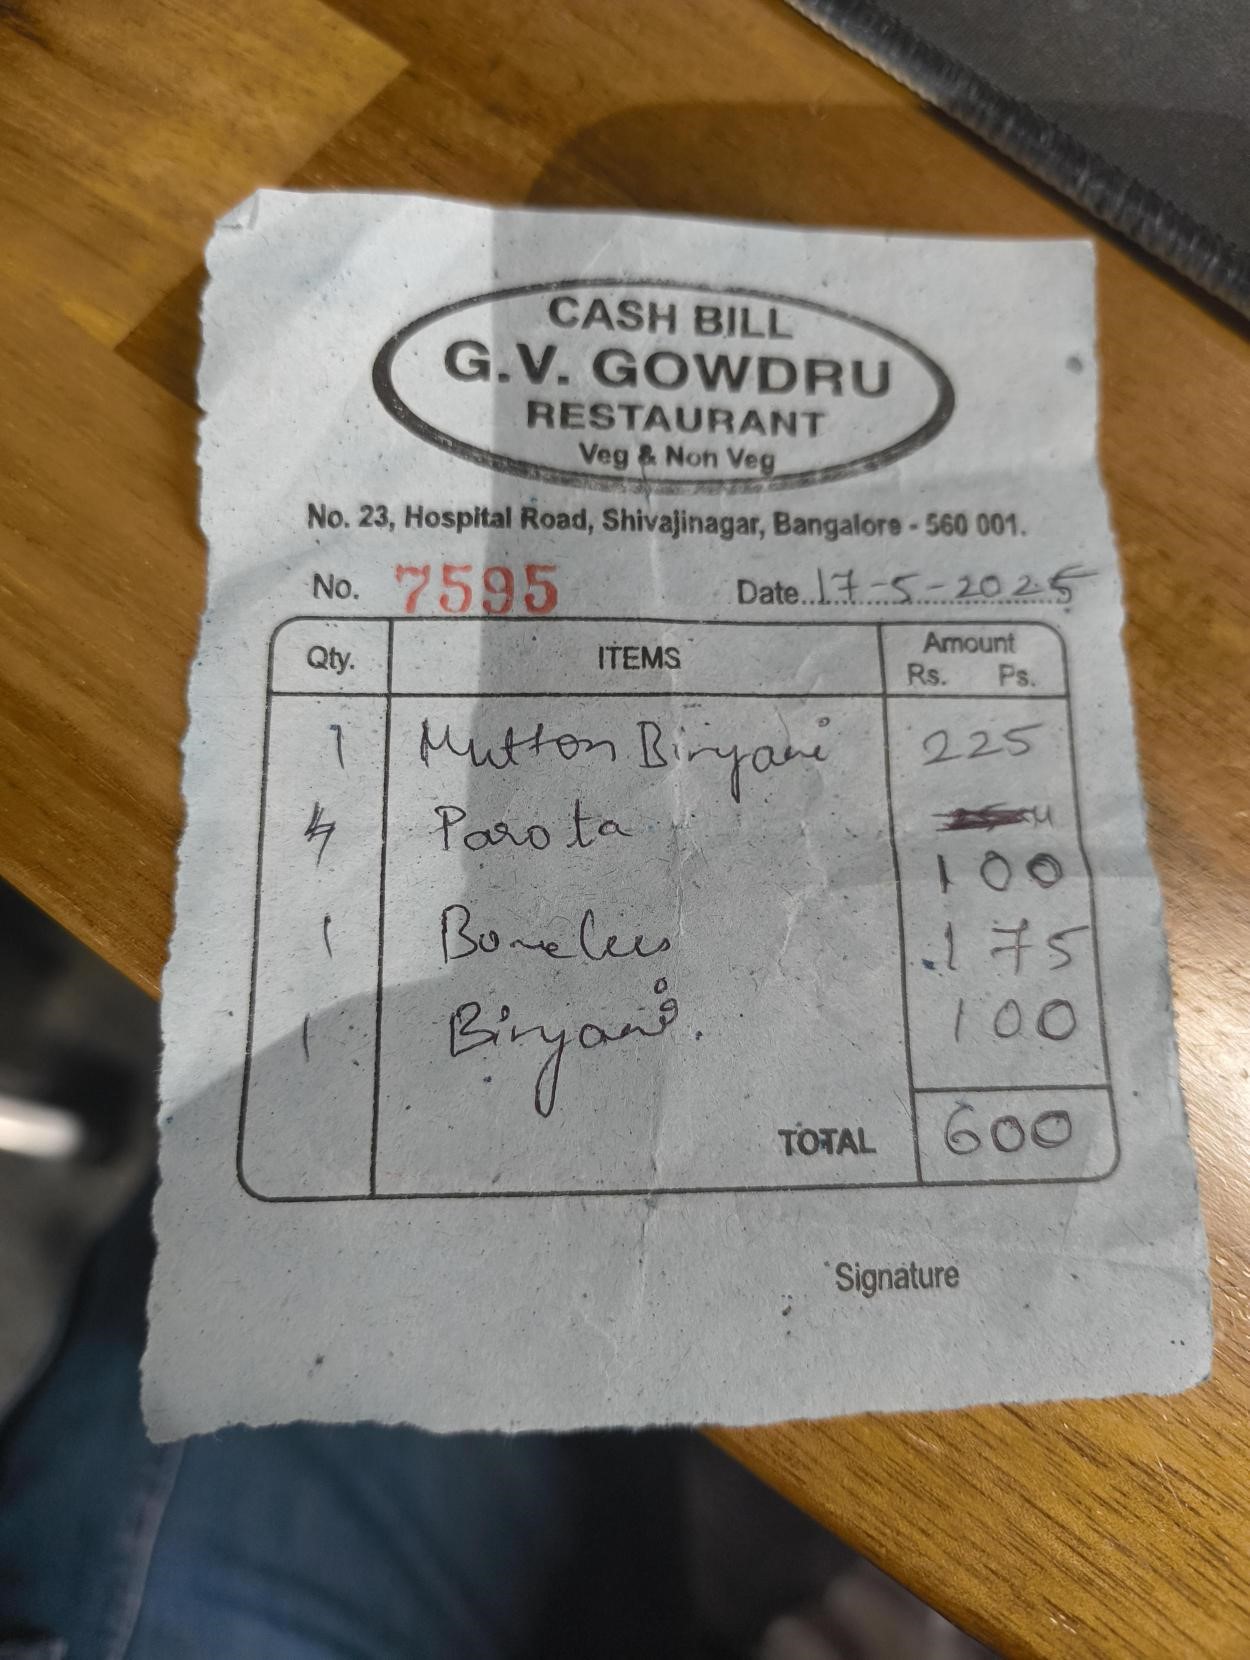 CASH BILL
G.V. GOWDRU
RESTAURANT
Veg & Non Veg
No. 23, Hospital Road, Shivajinagar, Bangalore - 560 001.
No. 7595 Date..17-5-2025
Qty. ITEMS Amount
Rs. Ps.
1 Mutton Biryani 225
4 Parota
100
1 Boneless 175
1 Biryani. 100
TOTAL 600
Signature